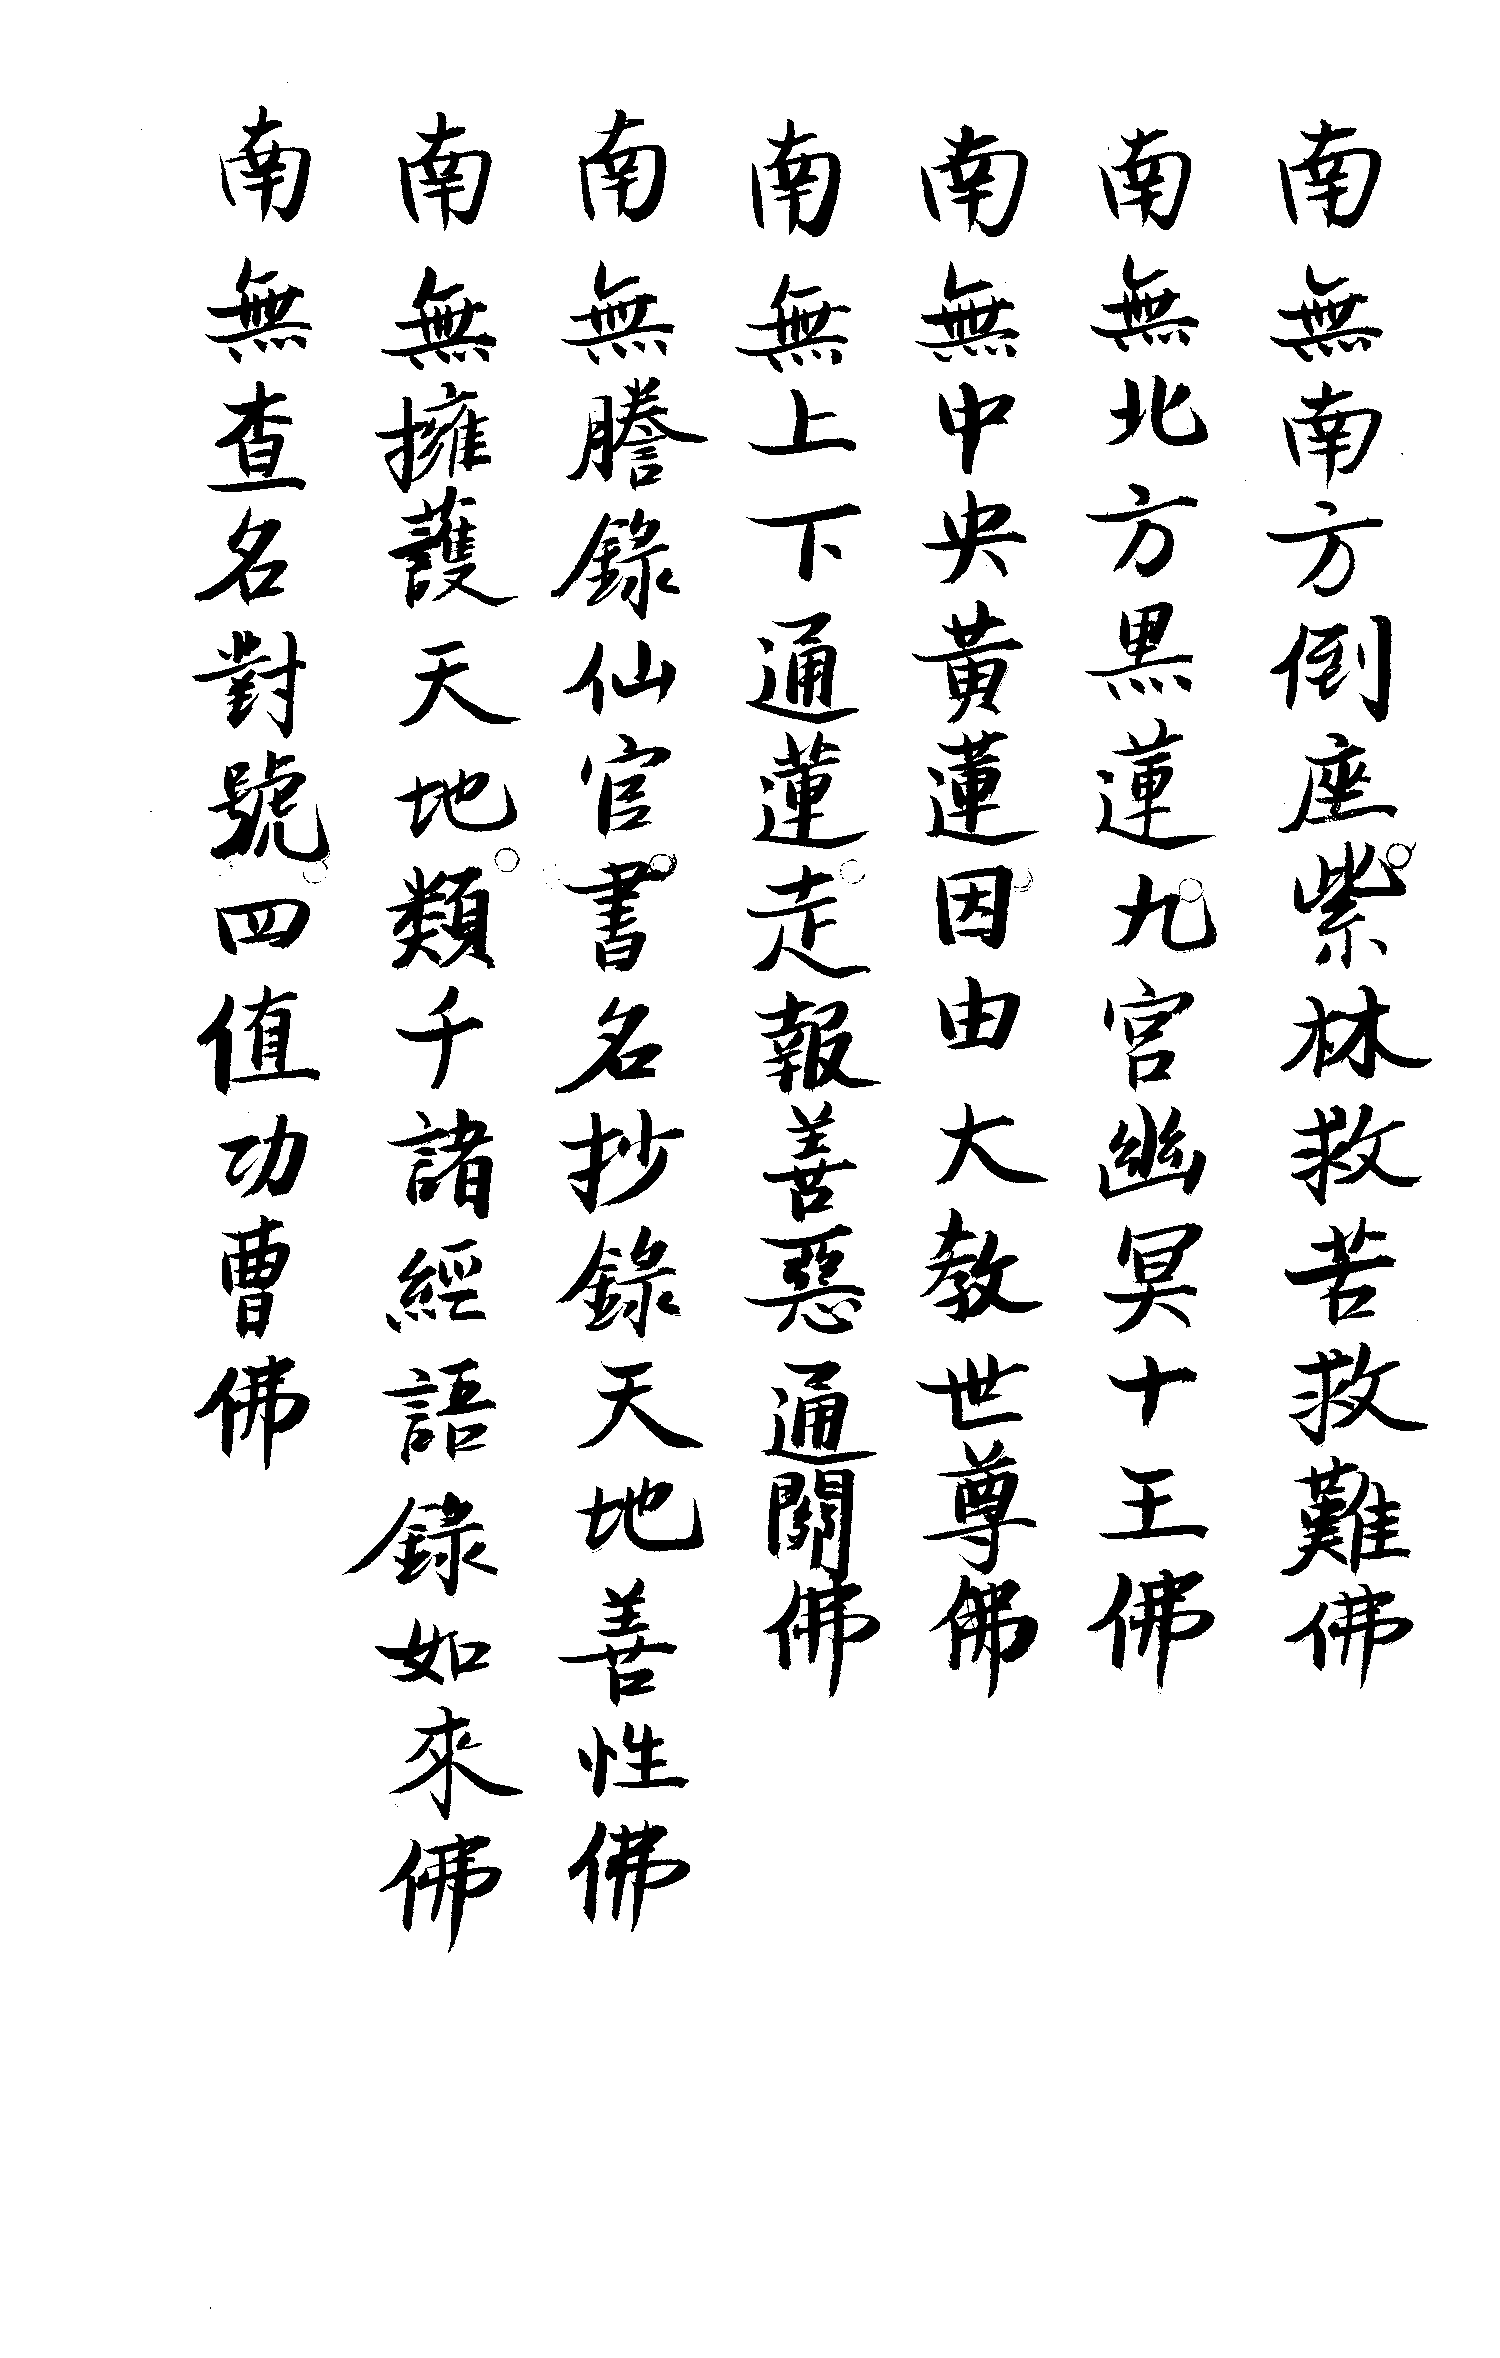 南無南方倒座紫林救苦救難佛
南無北方黑蓮九宮幽冥十王佛
南無中央黃蓮因由大教世尊佛
南無上下通蓮走報善惡通關佛
南無謄錄仙官書名抄錄天地善性佛
南無擁護天地類千諸經語錄如來佛
南無查名對號四值功曹佛